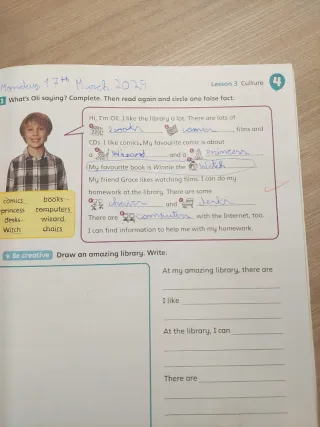 Monday 17th March 2025
Lesson 3 Culture 4
1 What's Oli saying? Complete. Then read again and circle one false fact.
Hi, I'm Oli. I like the library a lot. There are lots of
books, comics, films and
CDs. I like comics. My favourite comic is about
a wizard and a princess.
My favourite book is Winnie the Witch.
My friend Grace likes watching films. I can do my
homework at the library. There are some
chairs and desks.
There are computers with the Internet, too.
I can find information to help me with my homework.
comics books
princess computers
desks wizard
Witch chairs
Be creative Draw an amazing library. Write.
At my amazing library, there are
I like
At the library, I can
There are